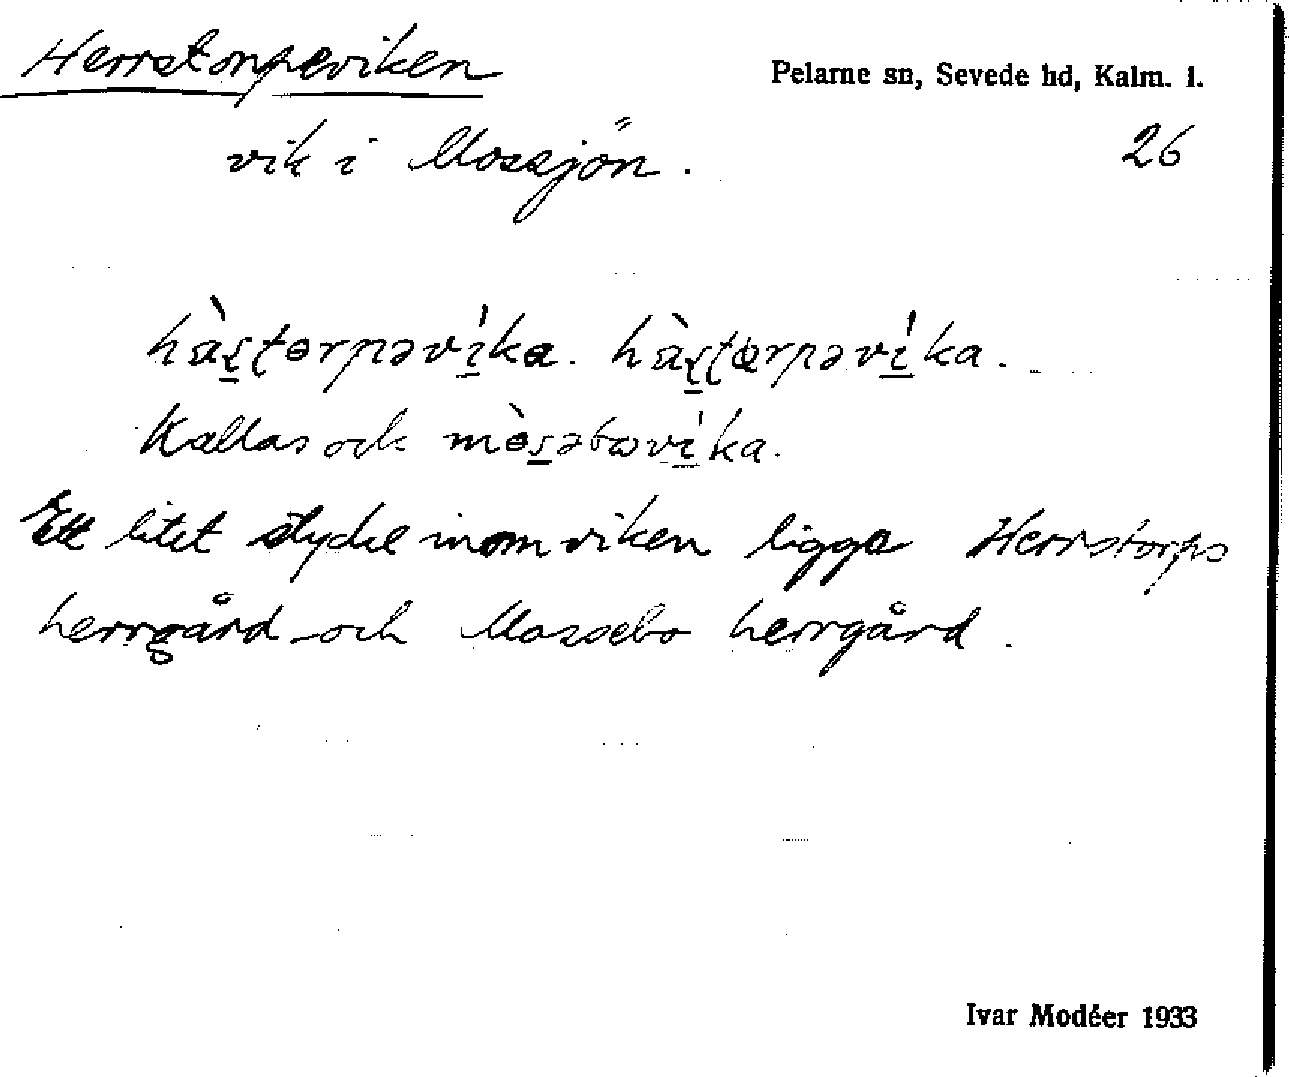 Herrstorpeviken
Pelarne sn, Sevede hd, Kalm. l.
vik i Mossjön.
26
hὰʂʈɵrpəvíka. hὰʂʈɵrpəvíka.
Kallas och mɵ̀səbωvíka.
Ett litet stycke inom viken ligga Herrstorps
herrgård och Mossebo herrgård.
Ivar Modéer 1933